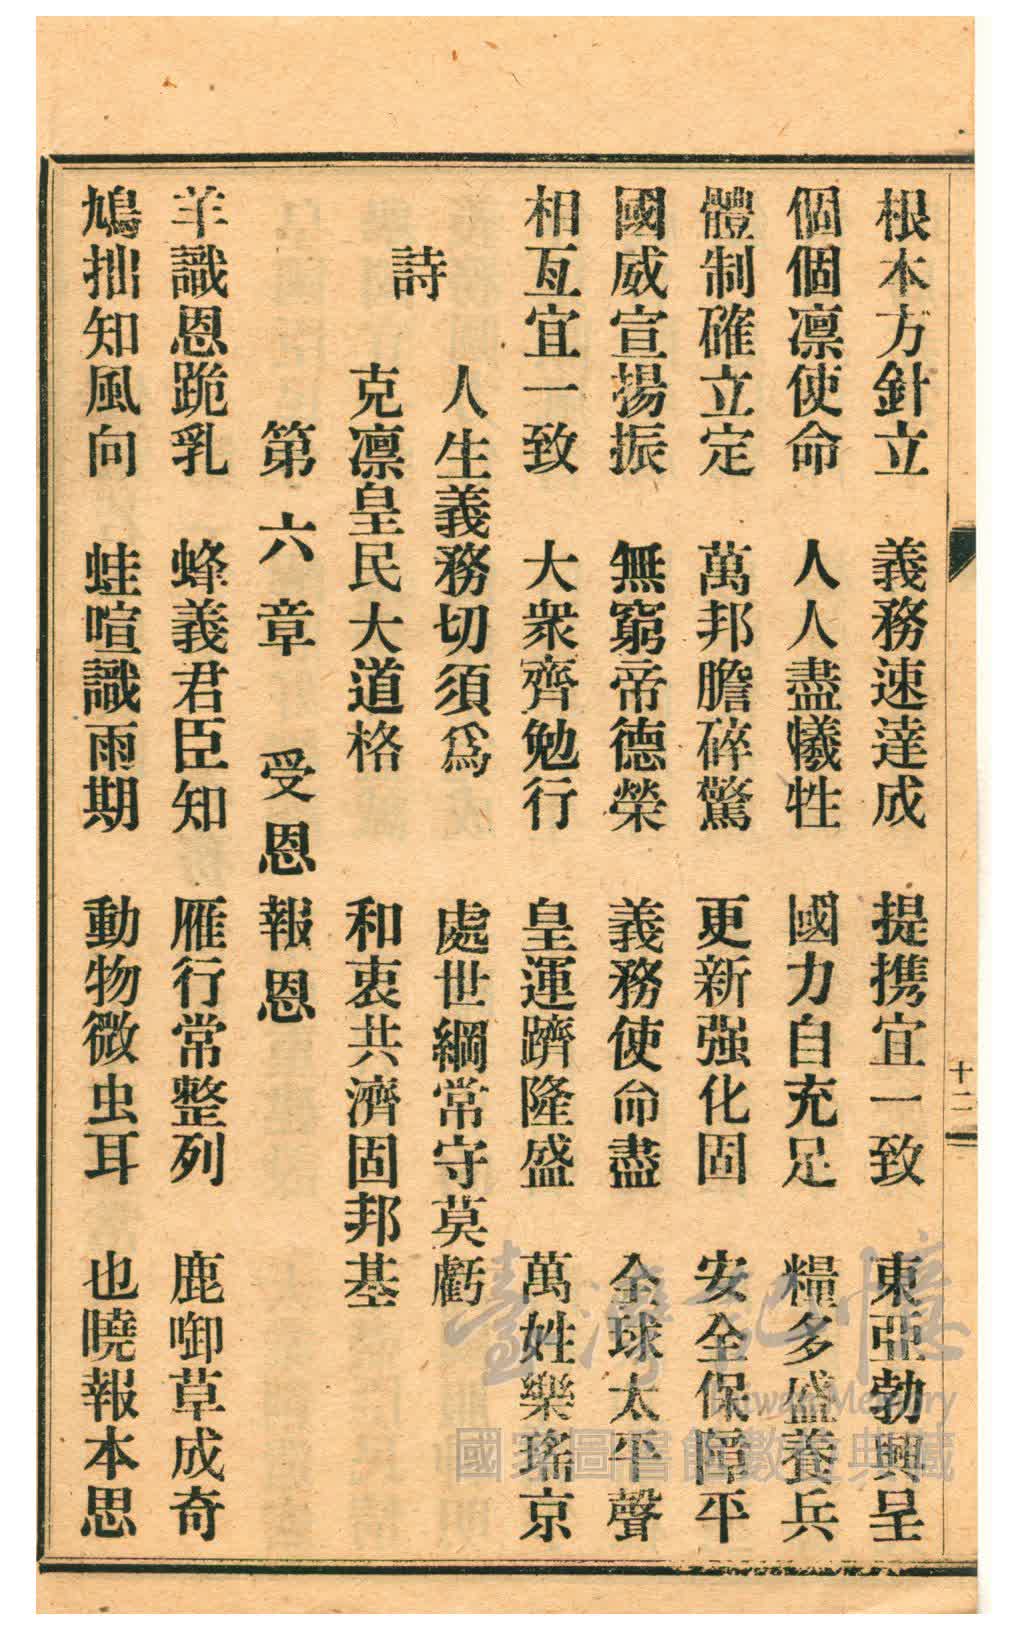 根本方針立　義務速達成　提携宜一致　東亞勃興呈
個個凛使命　人人盡犧牲　國力自充足　糧多盛養兵
體制確立定　萬邦膽碎驚　更新强化固　安全保障平
國威宣揚振　無窮帝德榮　義務使命盡　全球太平聲
相互宜一致　大衆齊勉行　皇運躋隆盛　萬姓樂瑤京
詩
人生義務切須爲　處世綱常守莫虧
克凛皇民大道格　和衷共濟固邦基
第六章　受恩報恩
羊識恩跪乳　蜂義君臣知　雁行常整列　鹿啣草成奇
鳩拙知風向　蛙喧識雨期　動物微虫耳　也曉報本思
十二
臺灣記憶
Taiwan Memory
國家圖書館數位典藏